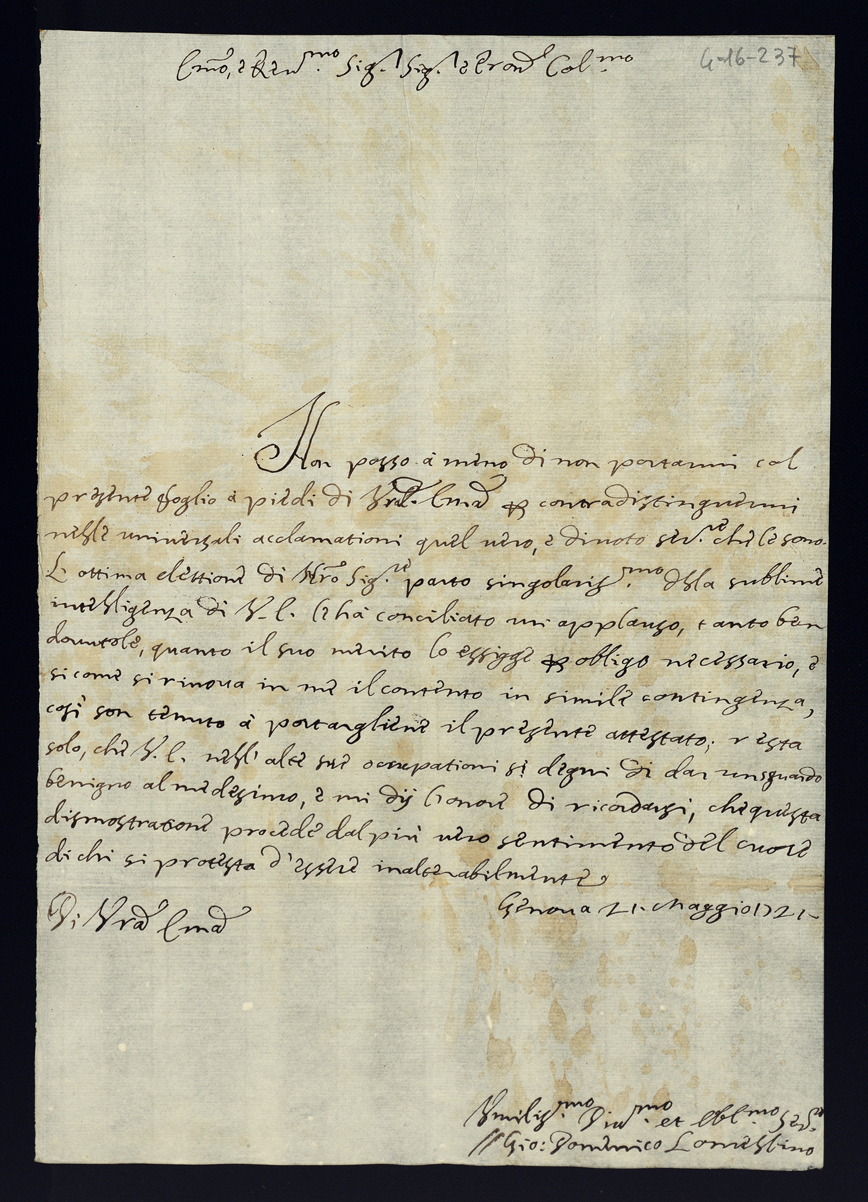 Em̃o, e Reu.mo Sig.r Sig.r e Pron Col.mo
G-16-237
Non posso à meno di non portarmi col
presente foglio à piedi di Vra Em̃a p contradistinguermi
nelle uniuersali acclamationi quel uero, e diuoto ser.re che le sono.
L'ottima elettione di Nr̃o Sig.re parto singolariss.mo della sublime
intelligenza di V. E. le hà conciliato un applauso, tanto ben
douutole, quanto il suo merito lo essigge p obligo necessario, e
si come si rinoua in me il contento in simile contingenza,
così son tenuto à portargliene il presente attestato; resta
solo, che V. E. nell' alte sue occupationi si degni di dar un sguardo
benigno al medesimo, e mi dij l'onore di ricordarsi, che questa
dismostratione procede dal più uero sentimento del cuore
di chi si protesta d'essere inalterabilmente
Genoua 21. Maggio 1721
Di Vrã Em̃a
Vmiliss.mo Diu.mo et Obl.mo Ser.re
Gio: Domenico Lomellino